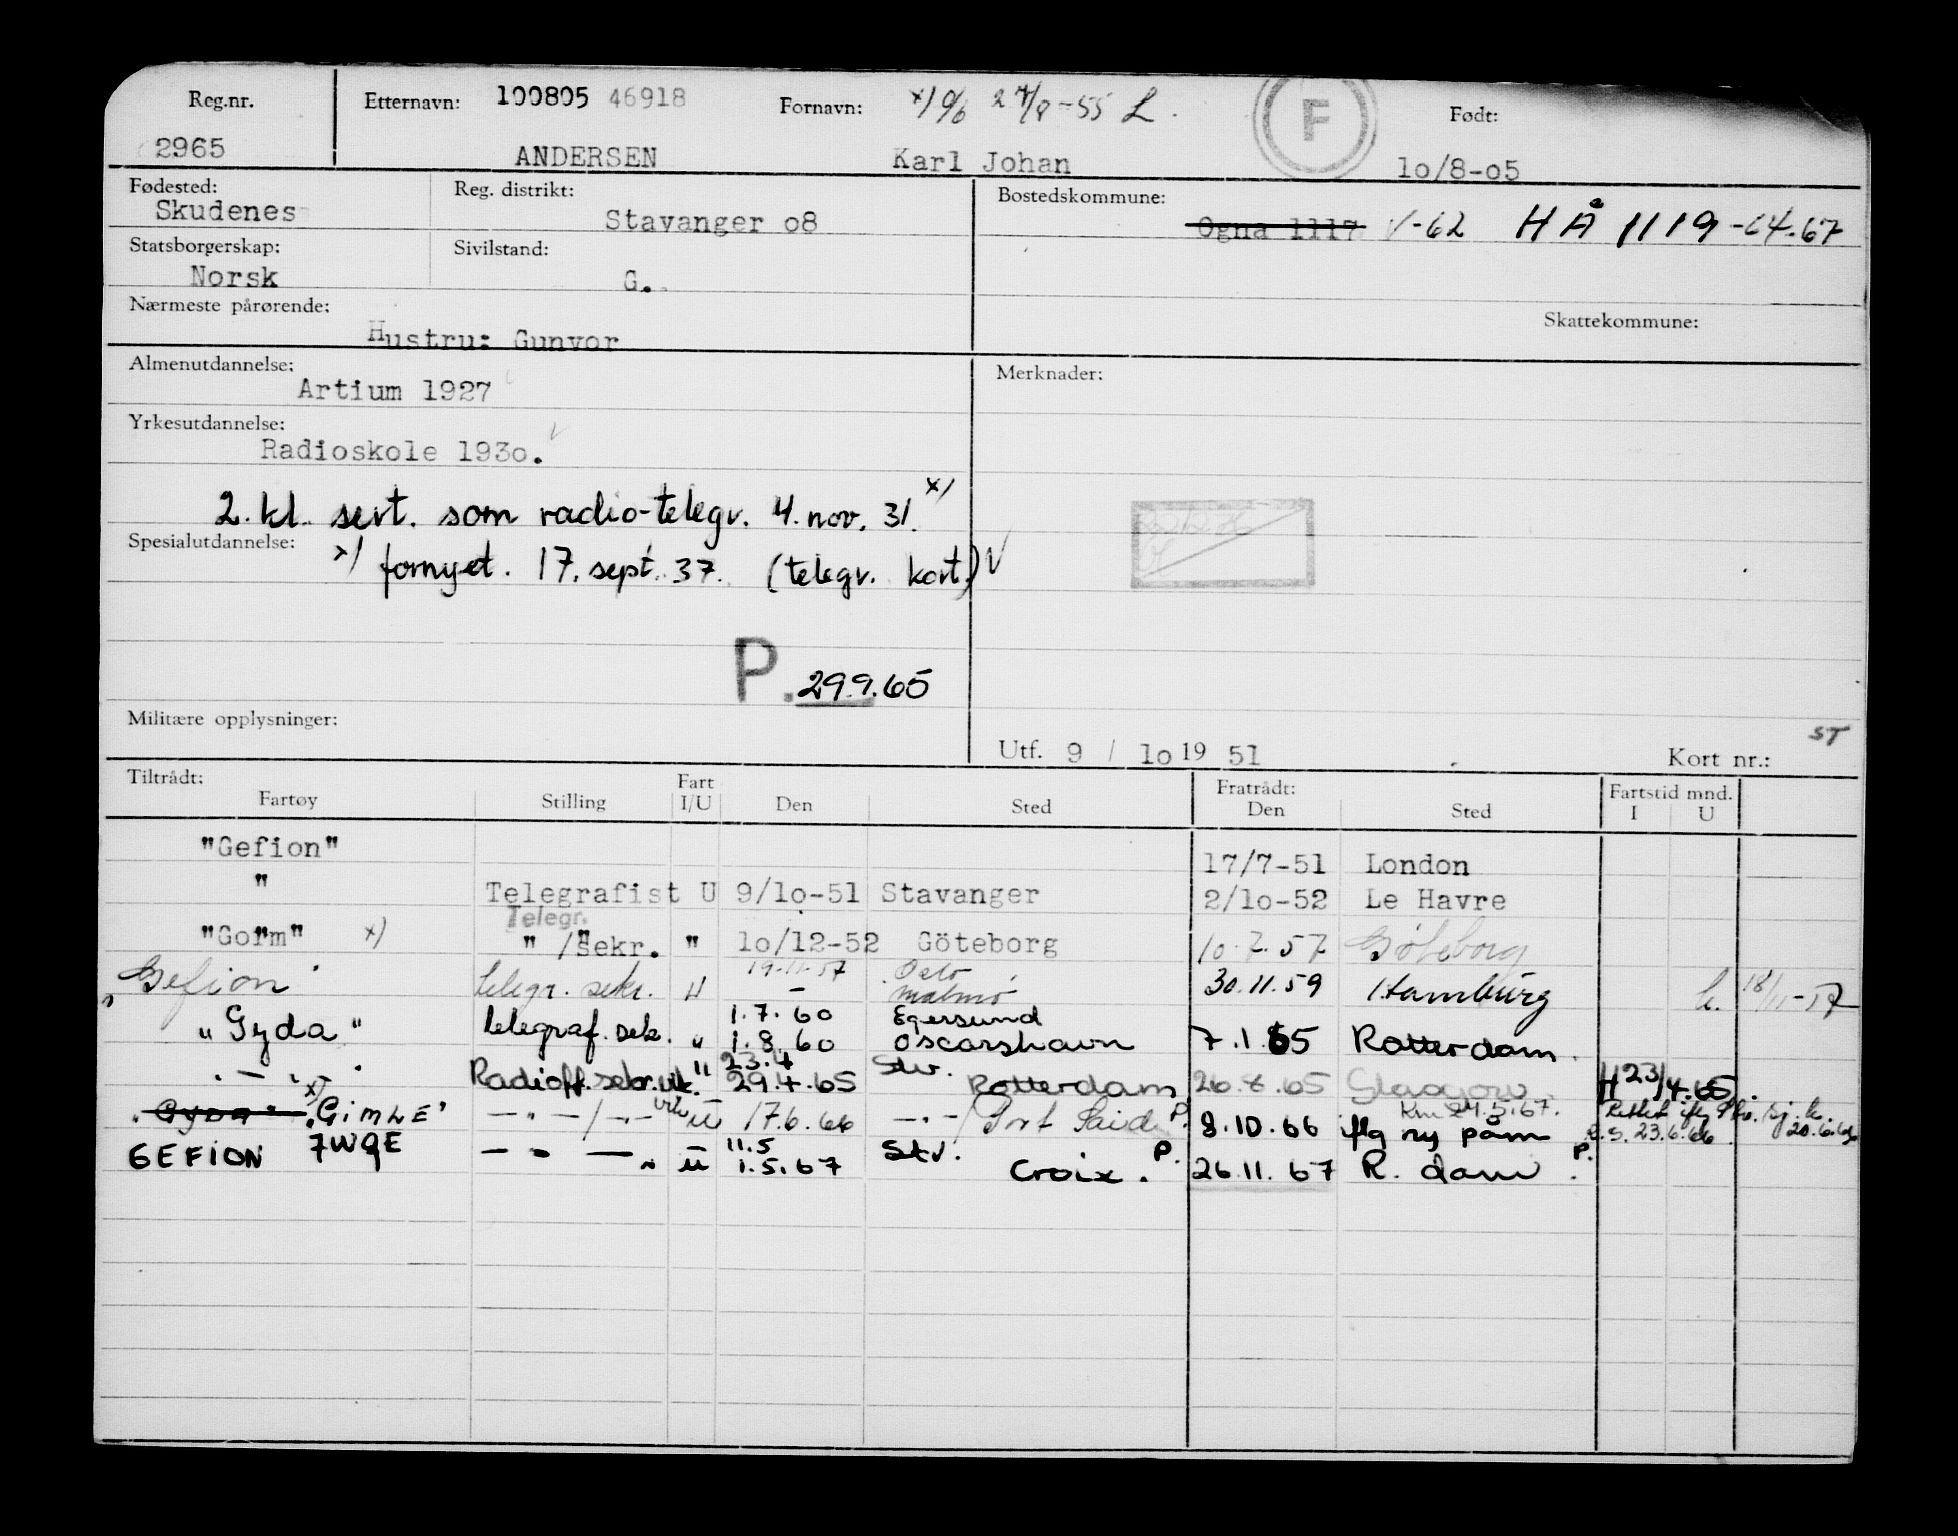 Reg.nr. Etternavn: 100805 46918 Fornavn: x) 2 4/8-55 L. F Født:
2965 ANDERSEN Karl Johan 10/8-05
Fødested: Reg. distrikt: Bostedskommune:
Skudenes Stavanger o8 Ogna 1117 V-62 HÅ 1119 -64.67
Statsborgerskap: Sivilstand:
Norsk G.
Nærmeste pårørende: Skattekommune:
Hustru: Gunvor
Almenutdannelse: Merknader:
Artium 1927
Yrkesutdannelse:
Radioskole 193o.
2. kl. sert. som radio-telegr. 4. nov. 31. x)
Spesialutdannelse:
x) fornyet. 17. sept. 37. (telegr. kort.) V
P. 29.9.65
Militære opplysninger:
Utf. 9 / lo 19 51 Kort nr.: ST
Tiltrådt: Fart Fratrådt: Fartstid mnd.
Fartøy Stilling I/U Den Sted Den Sted I U
"Gefion" 17/7-51 London
" Telegrafist U 9/lo-51 Stavanger 2/lo-52 Le Havre
Telegr.
"Gorm" x) " /sekr. " lo/12-52 Göteborg 10.7.57 Göteborg
19.11.57 Oslo
Gefion telegr. sekr. U - Malmö 30.11.59 Hamburg h. 18/11-57
1.7.60 Egersund
"Gyda" telegraf. sek. " 1.8.60 Oscarshavn 7.1.65 Rotterdam.
23.4 Stv.
" - " Radioff. sekr. vik. " 29.4.65 Rotterdam 26.8.65 Glasgow H 23/4.65.
"Gyda" x) "GIMLE" - " - / - " - vik U 17.6.66 - " - / Port Said P. 8.10.66 iflg ny påm Km 24.5.67. Rettet iflg sj. k. 20.6.66 R.S. 23.6.66
11.5 Stv.
GEFION 7WQE - " - " U 1.5.67 Croix. P. 26.11.67 R. dam P.